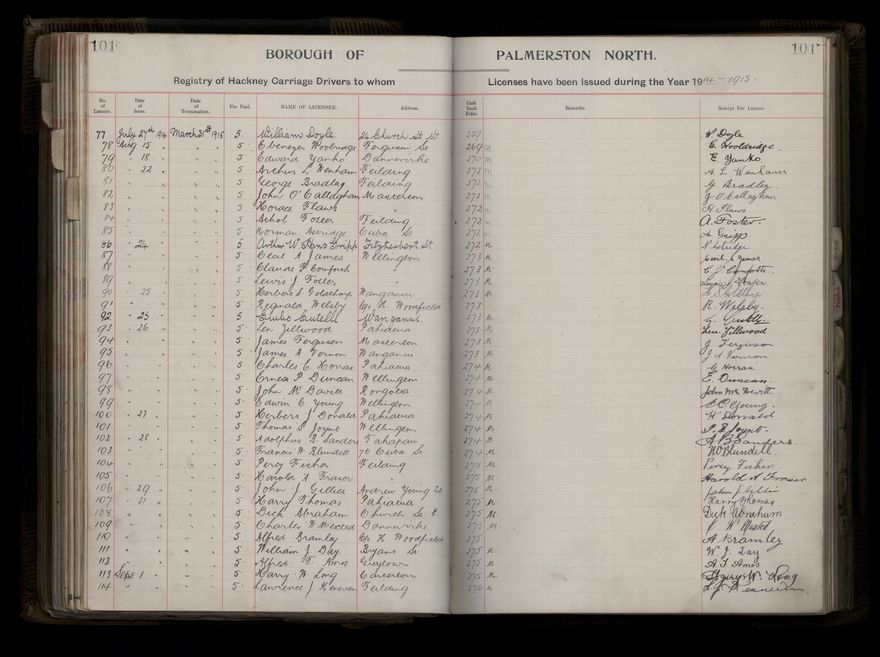 101
101
BOROUGH OF PALMERSTON NORTH.
Registry of Hackney Carriage Drivers to whom Licenses have been Issued during the Year 1914-1915.
No. of License. Date of Issue. Date of Termination. Fee Paid. NAME OF LICENSEE. Address. Cash Book Folio. Remarks. Receipt For License.
77 July 27th 1914 March 31st 1915 5 William Doyle 26 Church St W 259 W Doyle
78 Aug 15 5 Ebenezer Woolridge Ferguson St 269 E. Wooldridge
79 18 5 Edward Yanko Dannevirke 270 E. Yanko
80 22 5 Arthur L Wenham Feilding 272 A. L. Wenham
81 5 George Bradley Feilding 272 G. Bradley
82 5 John O'Callaghan Masterton 272 J. O'Callaghan
83 5 Horace Flaws 272 H. Flaws
84 5 Foster Feilding 272 A. Foster
85 5 Norman Cuba St 272
86 24 5 Arthur W Gripp Fitzherbert St 272
87 5 Cecil A James Wellington 273 Cecil A James
88 5 Claude F Comforth 273
89 5 Lewis J Foster 273
90 25 5 Herbert S Goldthorp Wanganui 273
91 5 Reginald Welsby C/o H Woodfield 273 R Welsby
92 25 5 Giulio Wanganui 273
93 26 5 Len Zillwood Pahiatua 273 Len. Zillwood
94 5 James Ferguson Masterton 273 J Ferguson
95 5 James A Vernon Wanganui 273 J A Vernon
96 5 Charles C Horrax Pahiatua 274 C Horrax
97 5 Ernest P Duncan Wellington 274 E. Duncan
98 5 John Mc Rongotea 274
99 5 Edwin C Young Wellington 274 E C Young
100 27 5 Herbert J Donald Pahiatua 274 H Donald
101 5 Thomas S Joynt Wellington 274 T. S Joynt
102 28 5 Adolphus B Sanders 274 A B Sanders
103 5 Francis W Blundell 70 Cuba St 274 Blundell
104 5 Percy Fisher Feilding 275 Percy Fisher
105 5 Harold A Fraser 275 Harold A Fraser
106 29 5 John J Gillies Andrew Young St 275 John J Gillies
107 31 5 Harry Thomas Pahiatua 275 Harry Thomas
108 5 Dick Abraham Church St E. 275 Dick Abraham
109 5 Charles W Dannevirke 275
110 5 Alfred Bramley C/o H Woodfield 275 A Bramley
111 5 William J Day Bryans St 275 W. J. Day
112 5 Alfred F. Amos Greytown 275 A F Amos
113 Sept 1 5 Harry W Long Carterton 275 Harry W. Long
114 5 Lawrence J Feilding 276